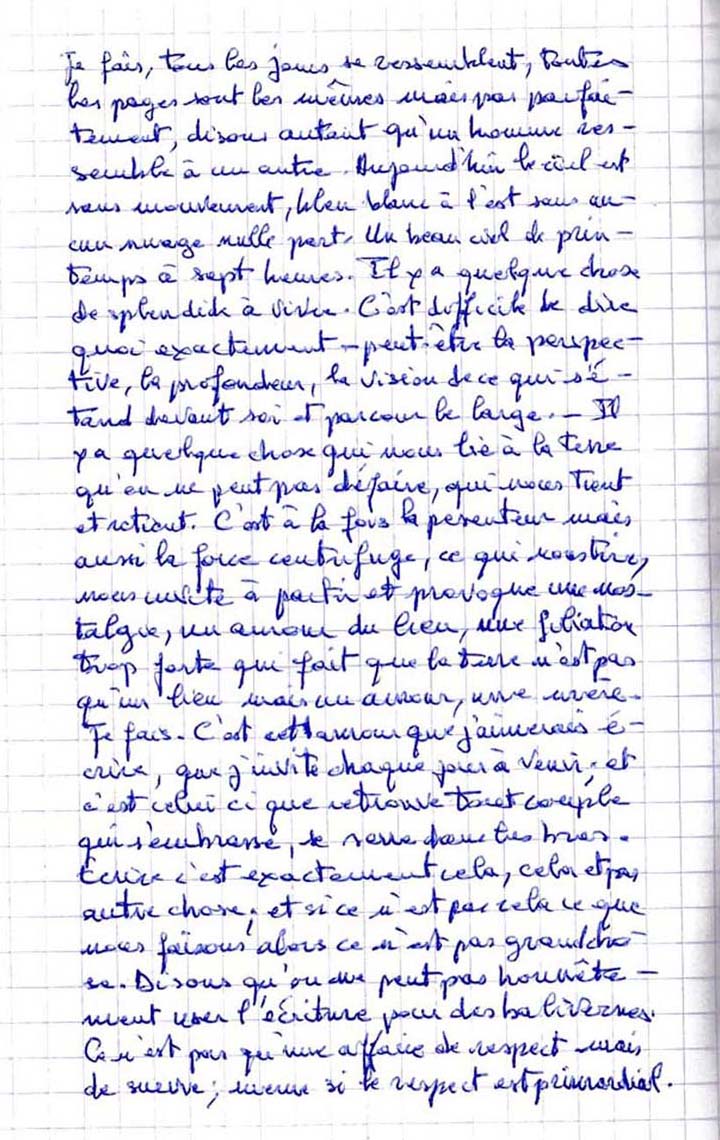 Je fais, tous les jours se ressemblent, toutes
les pages sont les mêmes mais pas parfai-
tement, disons autant qu'un homme res-
semble à un autre. Aujourd'hui le ciel est
sans mouvement, bleu blanc à l'est sans au-
cun nuage nulle part. Un beau ciel de prin-
temps à sept heures. Il y a quelque chose
de splendide à vivre. C'est difficile de dire
quoi exactement – peut-être la perspec-
tive, la profondeur, la vision de ce qui s'é-
tend devant soi et parcour le large. – Il
y a quelque chose qui nous lie à la terre
qu'on ne peut pas défaire, qui nous tient
et retient. C'est à la fois la pesenteur mais
aussi la force centrifuge, ce qui nous tire,
nous invite à partir et provoque une nos-
talgie, un amour du lieu, une filiation
trop forte qui fait que la terre n'est pas
qu'un lieu mais un amour, une mère.
Je fais. C'est cet amour que j'aimerais é-
crire, que j'invite chaque jour à venir; et
c'est celui ci que retrouve tout couple
qui s'embrasse, se serre dans les bras.
Écrire c'est exactement cela, cela et pas
autre chose; et si ce n'est pas cela ce que
nous faisons alors ce n'est pas grand cho-
se. Disons qu'on ne peut pas honnête-
ment user l'écriture pour des balivernes.
Ce n'est pas qu'une affaire de respect mais
de survie; même si le respect est primordial.